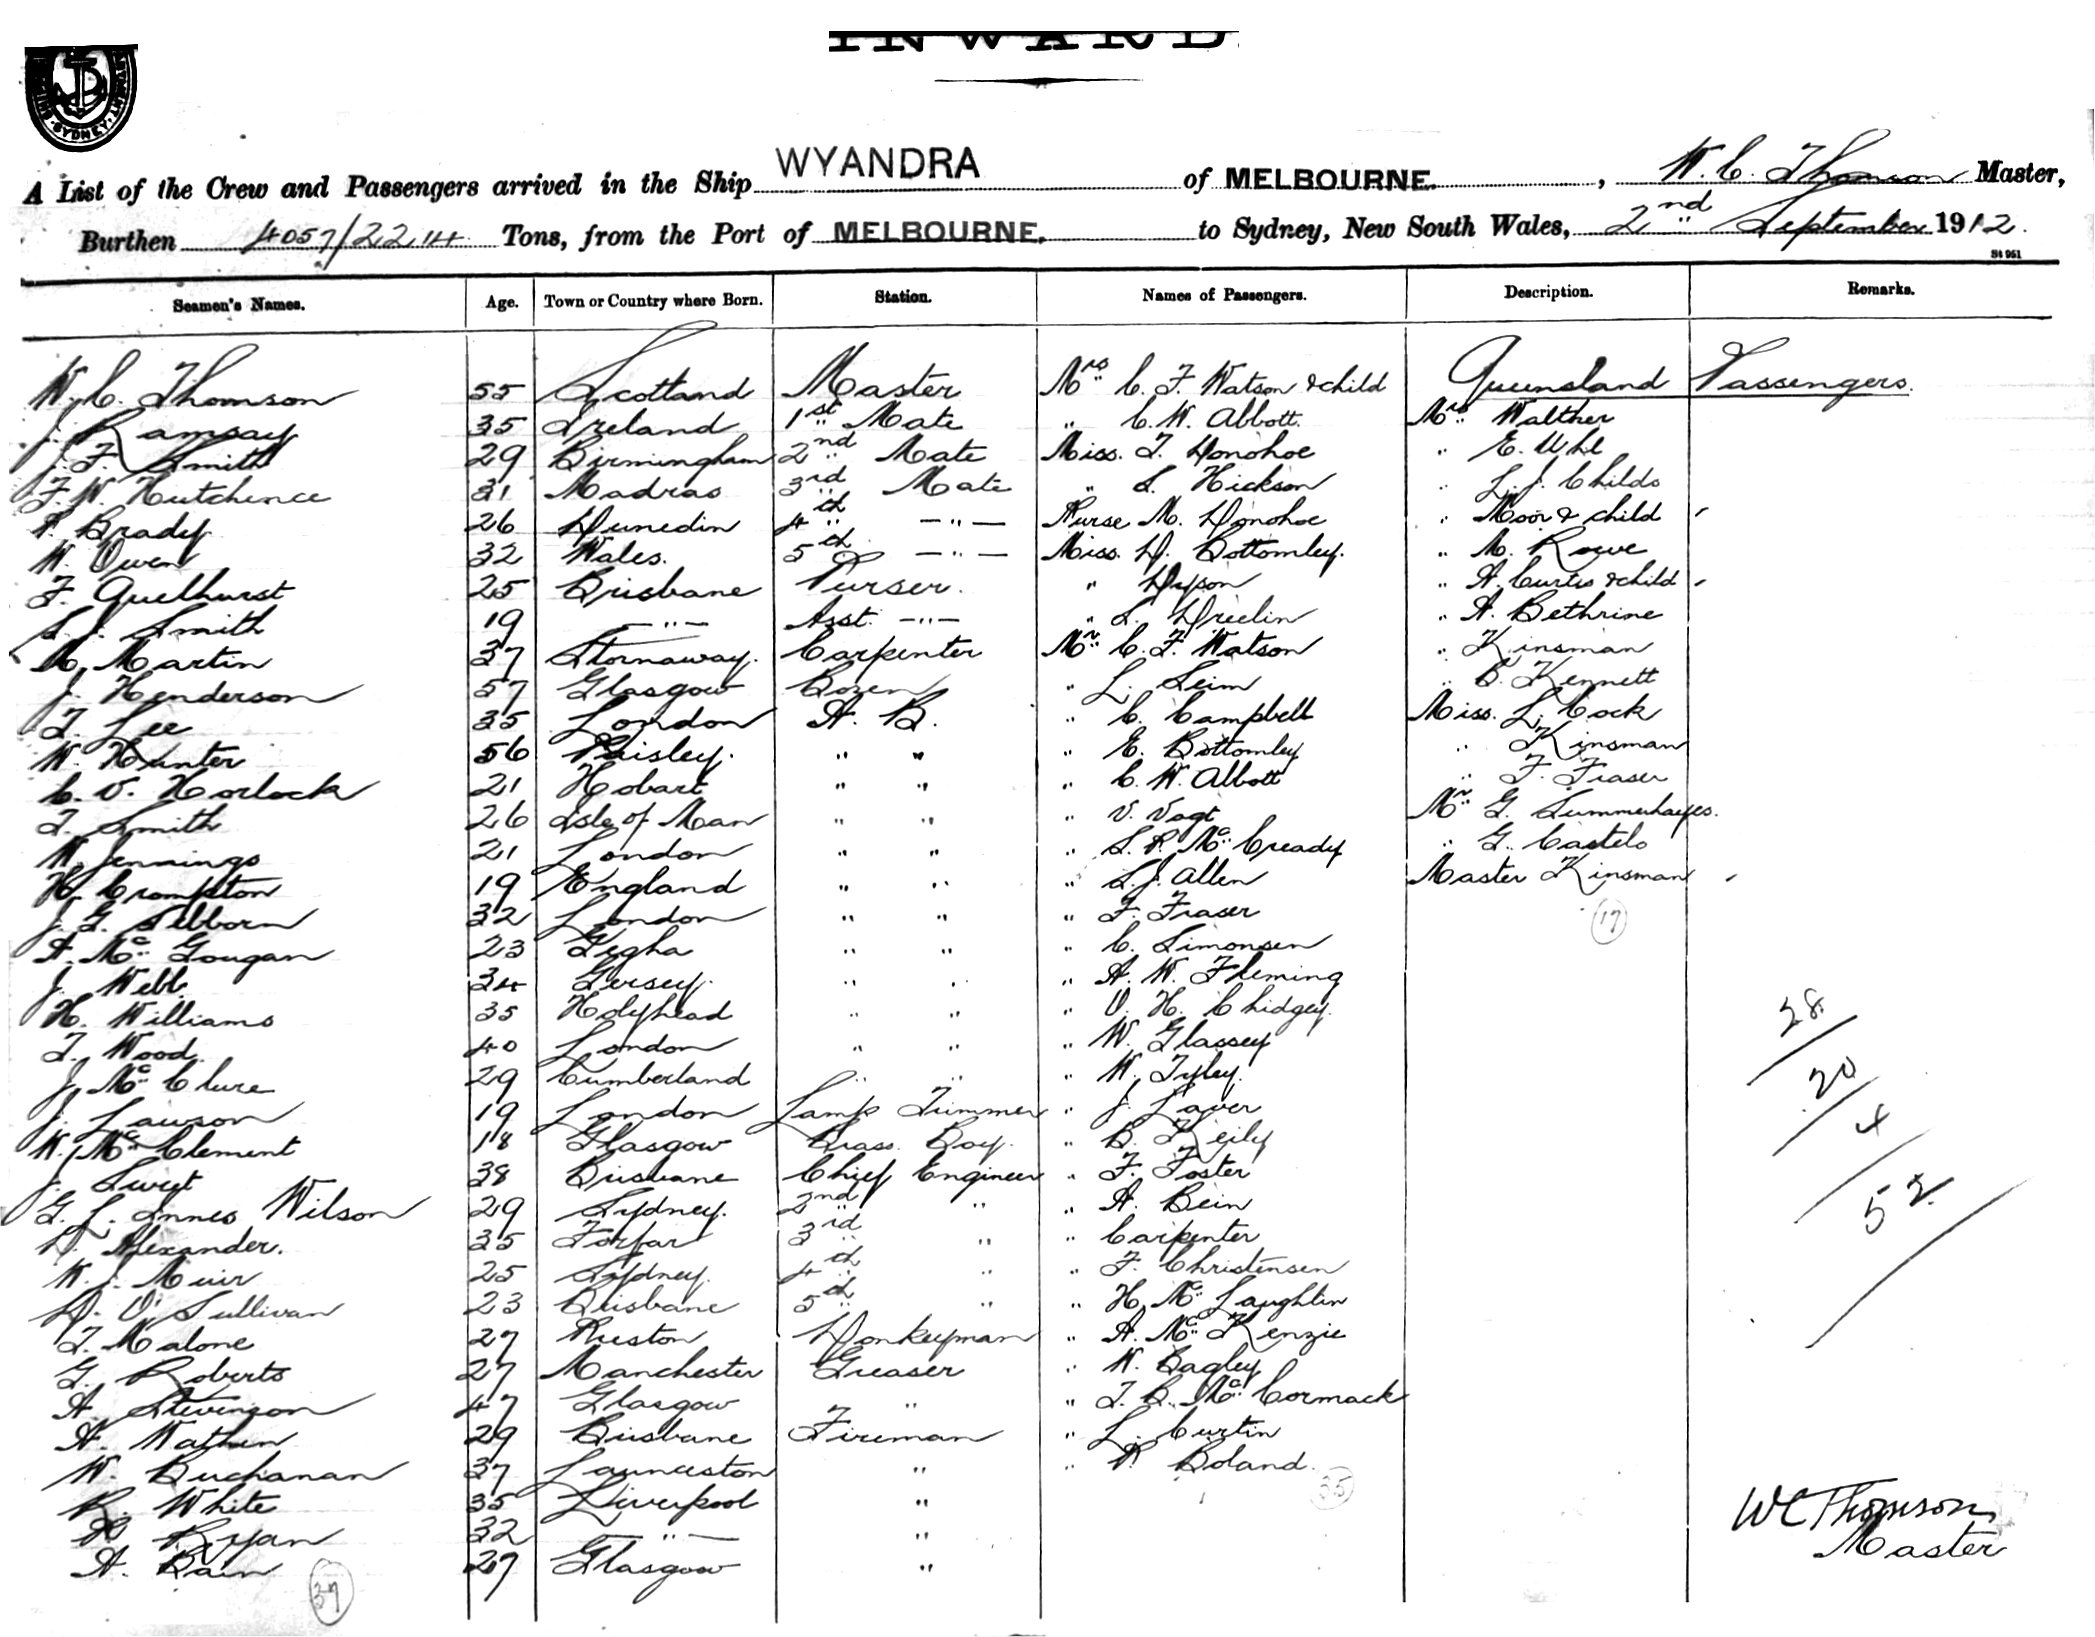 INWARD
SHIPPING
SYDNEY
A List of the Crew and Passengers arrived in the Ship WYANDRA of MELBOURNE. , W. C. Thomson Master,
Burthen 4057/2214 Tons, from the Port of MELBOURNE. to Sydney, New South Wales, 2nd September 1912.
St 961
Seamen's Names. Age. Town or Country where Born. Station. Names of Passengers. Description. Remarks.
W. C. Thomson 55 Scotland Master Mrs C. F. Watson & child Queensland Passengers.
J. Ramsay 35 Ireland 1st Mate " C. W. Abbott. Mrs Walther
J. F. Smith 29 Birmingham 2nd Mate Miss. T. Donohoe " E. Uhl
F. W. Hutchence 31 Madras 3rd Mate " S. Hickson " L. J. Childs
P. Brady 26 Dunedin 4th —"— Nurse M. Donohoe " Moor & child
W. Owen 32 Wales. 5th —"— Miss. D. Bottomley. " M. Rowe
F. Quelhurst 25 Brisbane Purser. " Dyson " A. Curtis & child
S. J. Smith 19 —"— Asst. —"— " L. Dreelin " A. Bethrine
M. Martin 37 Stornaway. Carpenter Mr C. F. Watson " Kinsman
J. Henderson 57 Glasgow Bozen " L. Seim " B. Kennett
T. Lee 35 London A. B. " C. Campbell Miss. L. Cock
W. Hunter 56 Paisley. " " " E. Bottomley " Kinsman
C. V. Horlock 21 Hobart " " " C. W. Abbott " F. Fraser
T. Smith 26 Isle of Man " " " V. Vogt Mr G. Summerhayes.
W. Jennings 21 London " " " S. R. McCready " G. Castels
H. Crompton 19 England " " " S. J. Allen Master Kinsman
J. G. Sebborn 32 London " " " F. Fraser 17
A. McGougan 23 Gegha " " " C. Simonsen
J. Webb. 34 Gersey. " " " A. W. Fleming
H. Williams 35 Holyhead " " " O. H. Chidgey.
T. Wood. 40 London " " " W. Glassey
J. McClure 29 Cumberland " " " W. Tyley.
J. Lawson 19 London Lamp Trimmer " J. Laver
W. McClement 18 Glasgow Brass. Boy. " B. Keily
J. Sweet 38 Brisbane Chief Engineer " F. Foster
G. L. Innes Wilson 29 Sydney. 2nd " " A. Bein
D. Alexander. 35 Forfar 3rd " " Carpenter
W. J. Muir 25 Sydney. 4th " " F. Christensen
D. O'Sullivan 23 Brisbane 5th " " H. McLaughlin
T. Malone 27 Ruston Donkeyman " A. McKenzie
G. Roberts 27 Manchester Greaser " W. Bagley
A. Stevenson 47 Glasgow " " T. B. McCormack
A. Wathen 29 Brisbane Fireman " L. Curtin
W. Buchanan 37 Launceston " " P. Boland.
R. White 35 Liverpool " 35
P. Ryan 32 —"— "
A. Bain 27 Glasgow "
37
28
20
4
52
WC Thomson
Master